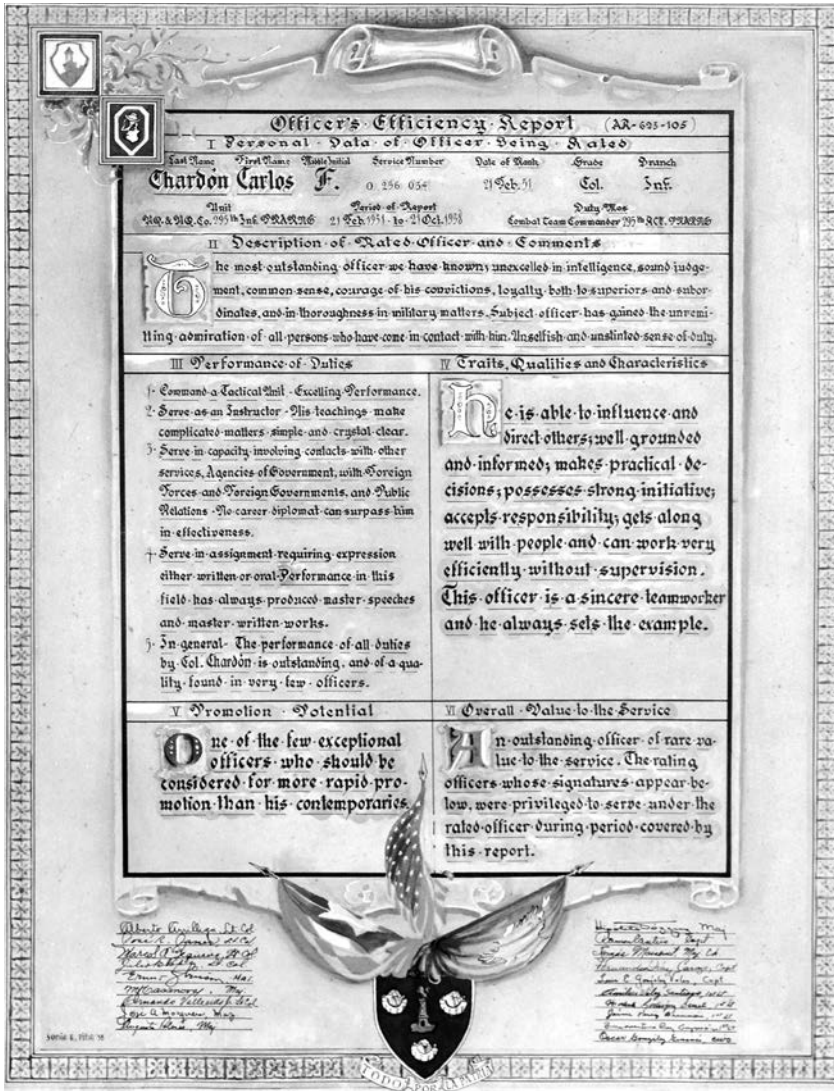 Officer's Efficiency Report (AR-623-105)
I Personal Data of Officer Being Rated
Last Name First Name Middle Initial Service Number Date of Rank Grade Branch
Chardón Carlos F. 0 256 034 21 Feb. 51 Col. Inf.
Unit Period of Report Duty Mos
HQ. & HQ. Co. 295th Inf. PRARNG 21 Feb. 1951 to 21 Oct. 1958 Combat Team Commander 295th RCT. PRARNG
II Description of Rated Officer and Comments
The most outstanding officer we have known; unexcelled in intelligence, sound judge-
ment, common sense, courage of his convictions, loyalty both to superiors and subor-
dinates, and in thoroughness in military matters. Subject officer has gained the unremi-
tting admiration of all persons who have come in contact with him. Unselfish and unstinted sense of duty.
III Performance of Duties
1- Command a Tactical Unit - Excelling Performance.
2- Serve as an Instructor - His teachings make
complicated matters simple and crystal clear.
3- Serve in capacity involving contacts with other
services, Agencies of Government, with Foreign
Forces and Foreign Governments, and Public
Relations - No career diplomat can surpass him
in effectiveness.
4- Serve in assignment requiring expression
either written or oral Performance in this
field has always produced master speeches
and master written works.
5- In general- The performance of all duties
by Col. Chardón is outstanding, and of a qua-
lity found in very few officers.
IV Traits, Qualities and Characteristics
He is able to influence and
direct others; well grounded
and informed; makes practical de-
cisions; possesses strong initiative;
accepts responsibility; gets along
well with people and can work very
efficiently without supervision.
This officer is a sincere teamworker
and he always sets the example.
V Promotion Potential
One of the few exceptional
officers who should be
considered for more rapid pro-
motion than his contemporaries.
VI Overall Value to the Service
An outstanding officer of rare va-
lue to the service. The rating
officers whose signatures appear be-
low, were privileged to serve under the
rated officer during period covered by
this report.
TODO POR LA PATRIA